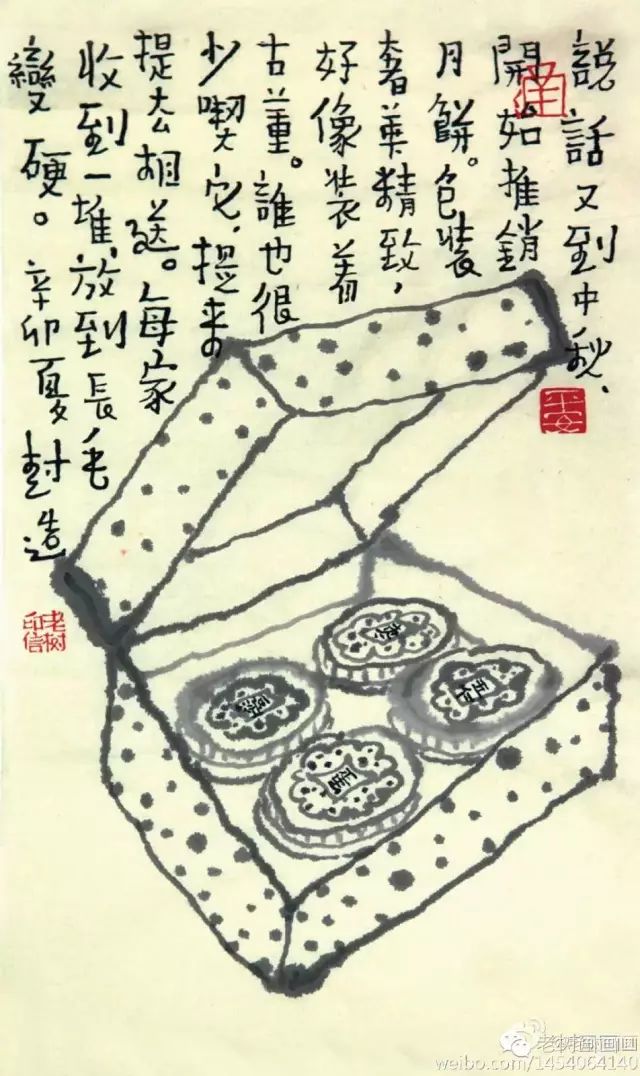 說話又到中秋、
開始推銷
月餅。包裝
奢華精致，
好像裝着
古董。誰也很
少喫它，提来
提去相送。每家
收到一堆，放到長毛
變硬。辛卯夏封造
平安
老树印信
五仁
老树画画
weibo.com/1454064140